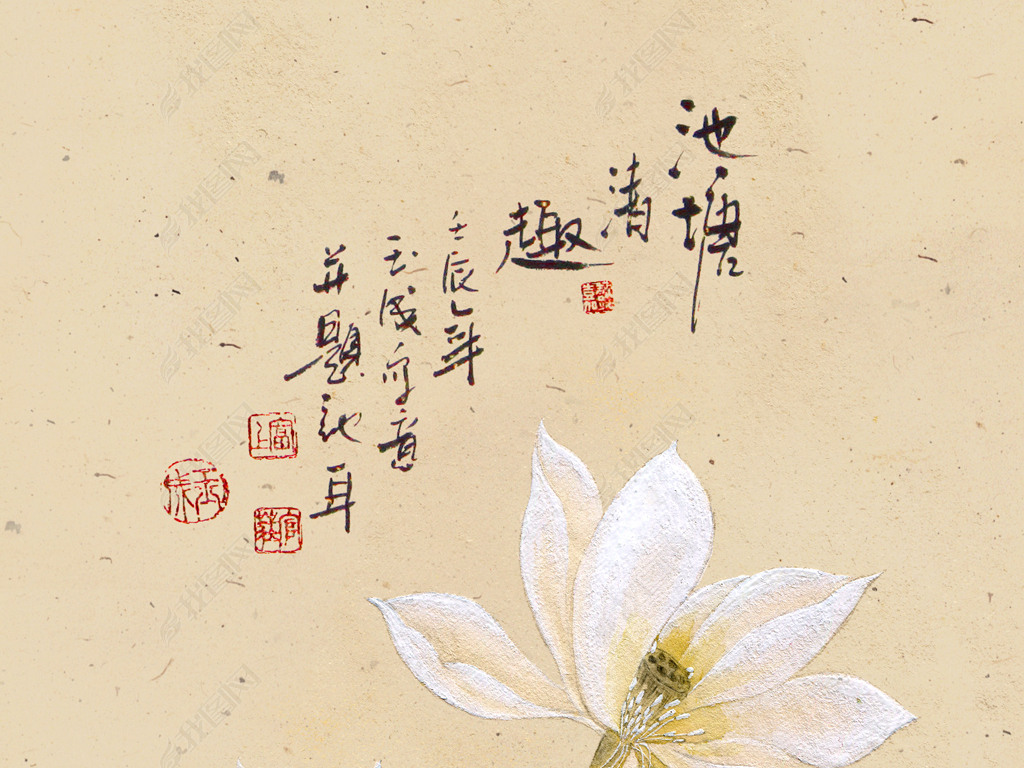 池塘
清
趣
壬辰年
玉成写意
并题记耳
我图网